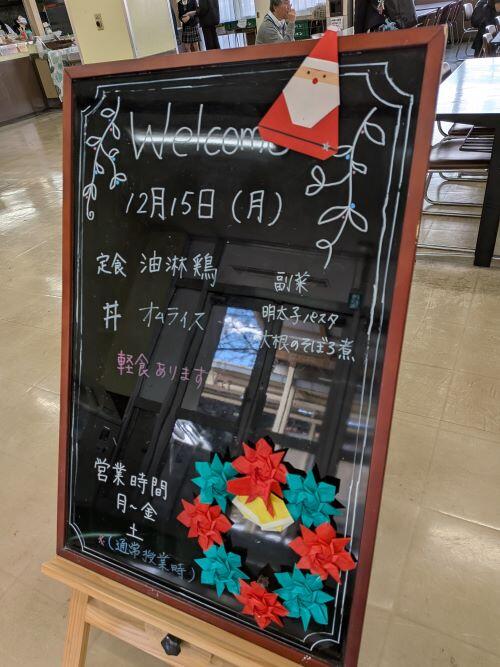 Welcome
12月15日(月)
定食 油淋鶏
丼 オムライス
副菜
明太子パスタ
大根のそぼろ煮
軽食あります
営業時間
月~金
土
*(通常授業時)